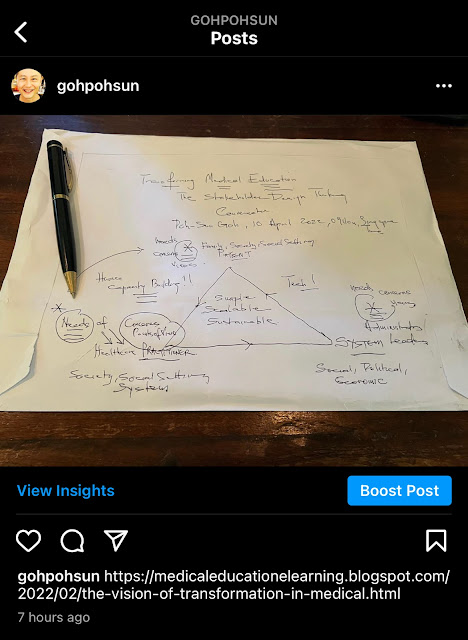 GOHPOHSUN
Posts
gohpohsun
Transforming Medical Education
The Stakeholder Design Thinking
Conversation
Poh-Sun Goh, 10 April 2022, Singapore
needs
concerns
views
Family, Society, Social Setting
PATIENT
Hence
Capacity Building!!
Tech!
Simple
Scalable
Sustainable
needs concerns
views
Needs of
Concerns
Points of View
Healthcare PRACTITIONER
Administrators
SYSTEM Leaders
Society, Social Setting
Systems
Social, Political,
Economic
View Insights
Boost Post
gohpohsun https://medicaleducationelearning.blogspot.com/
2022/02/the-vision-of-transformation-in-medical.html
7 hours ago